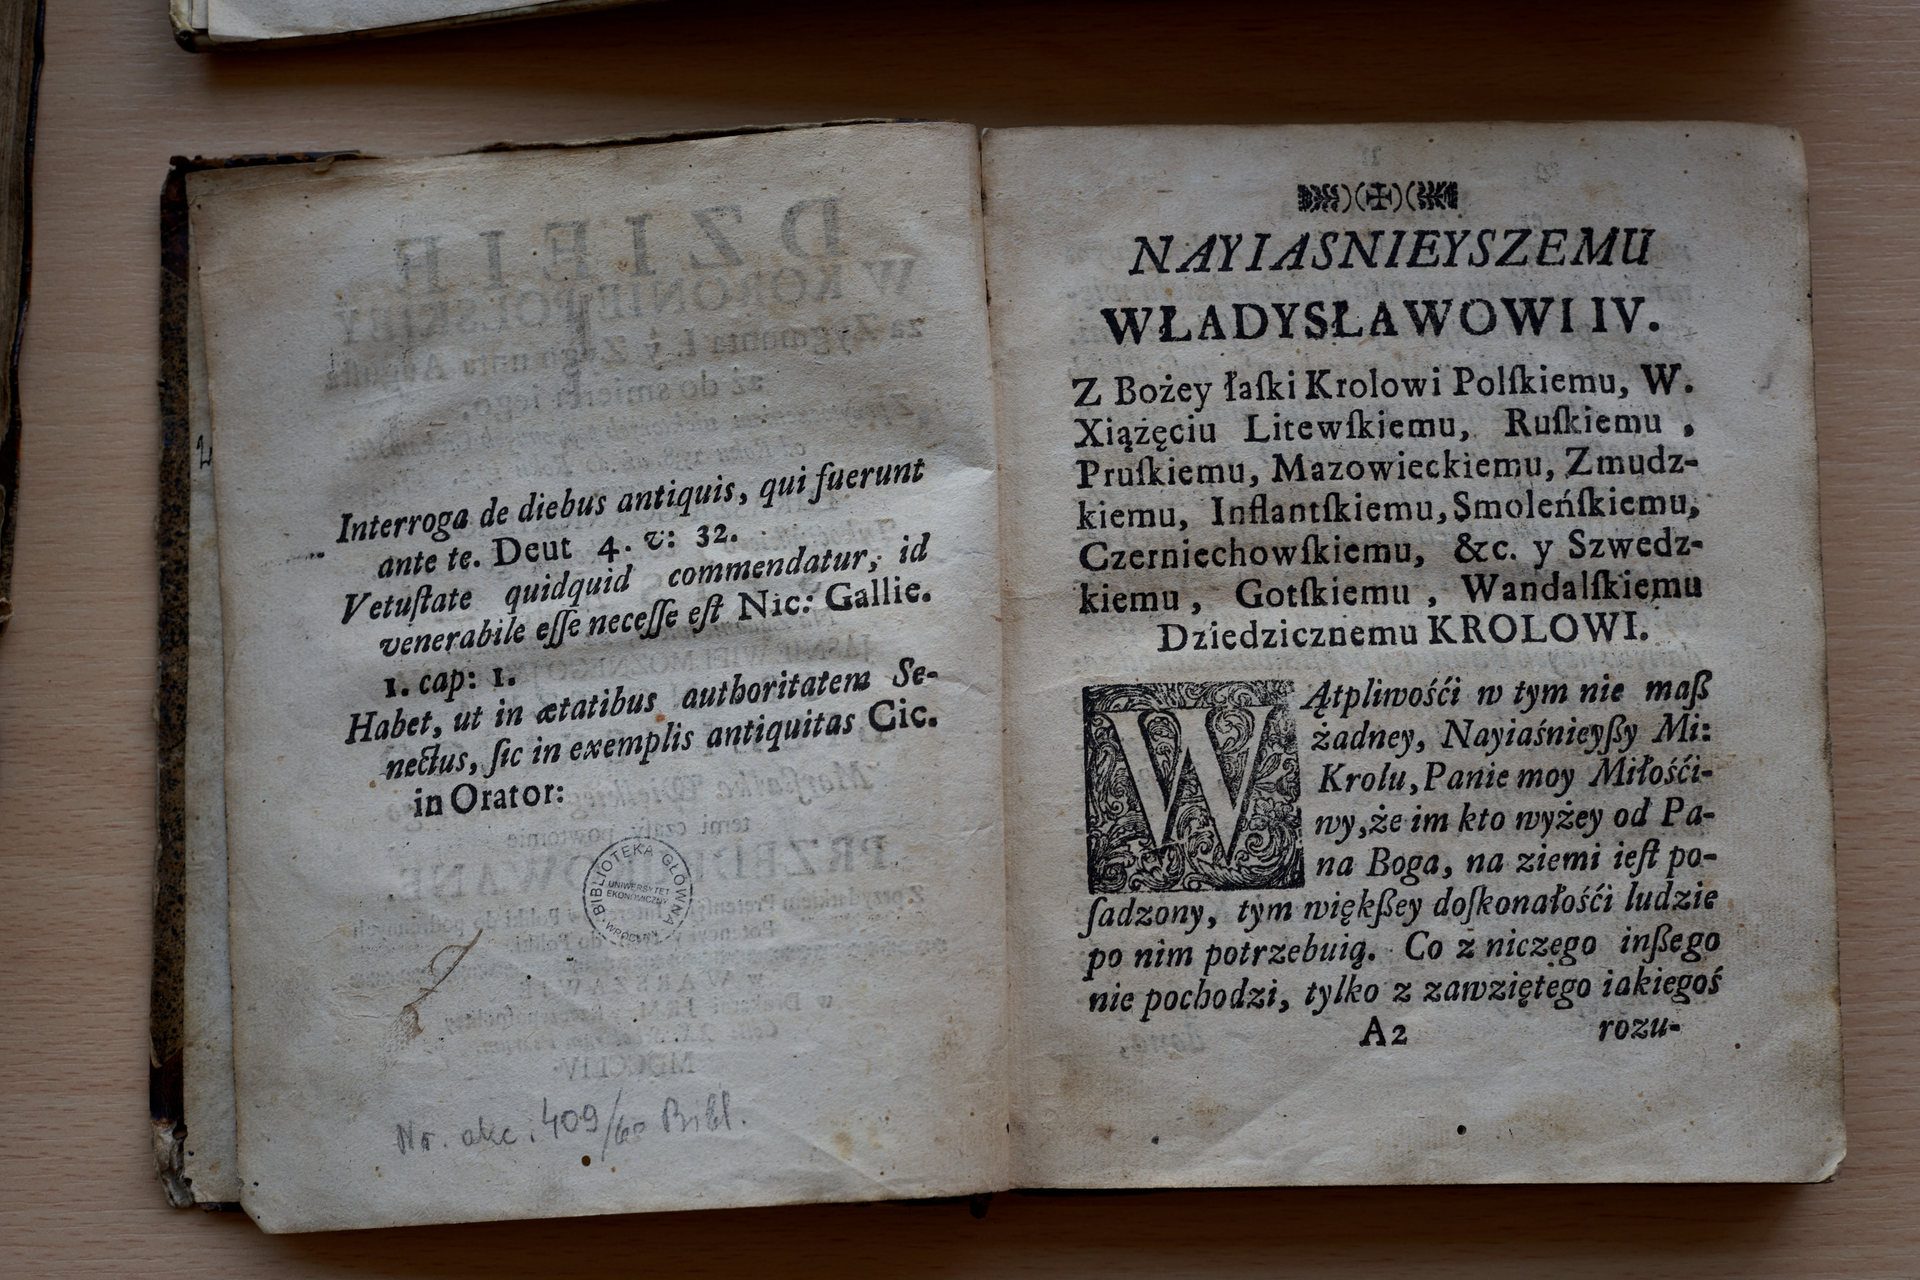 Interroga de diebus antiquis, qui fuerunt
ante te. Deut 4. v: 32.
Vetuſtate quidquid commendatur, id
venerabile eſſe neceſſe eſt Nic: Gallie.
1. cap: 1.
Habet, ut in ætatibus authoritatem Se-
nectus, ſic in exemplis antiquitas Cic.
in Orator:
BIBLIOTEKA GŁÓWNA
UNIWERSYTET
EKONOMICZNY
WROCŁAW
Nr. akc. 409/60 Bibl.
NAYIASNIEYSZEMU
WŁADYSŁAWOWI IV.
Z Bożey łaſki Krolowi Polſkiemu, W.
Xiążęciu Litewſkiemu, Ruſkiemu,
Pruſkiemu, Mazowieckiemu, Zmudz-
kiemu, Inflantſkiemu, Smoleńſkiemu,
Czerniechowſkiemu, &c. y Szwedz-
kiemu, Gotſkiemu, Wandalſkiemu
Dziedzicznemu KROLOWI.
WĄtpliwośći w tym nie maß
żadney, Nayiaśnieyßy Mi:
Krolu, Panie moy Miłośći-
wy, że im kto wyżey od Pa-
na Boga, na ziemi ieſt po-
ſadzony, tym więkßey doſkonałośći ludzie
po nim potrzebuią. Co z niczego inßego
nie pochodzi, tylko z zawziętego iakiegoś
A2 rozu-